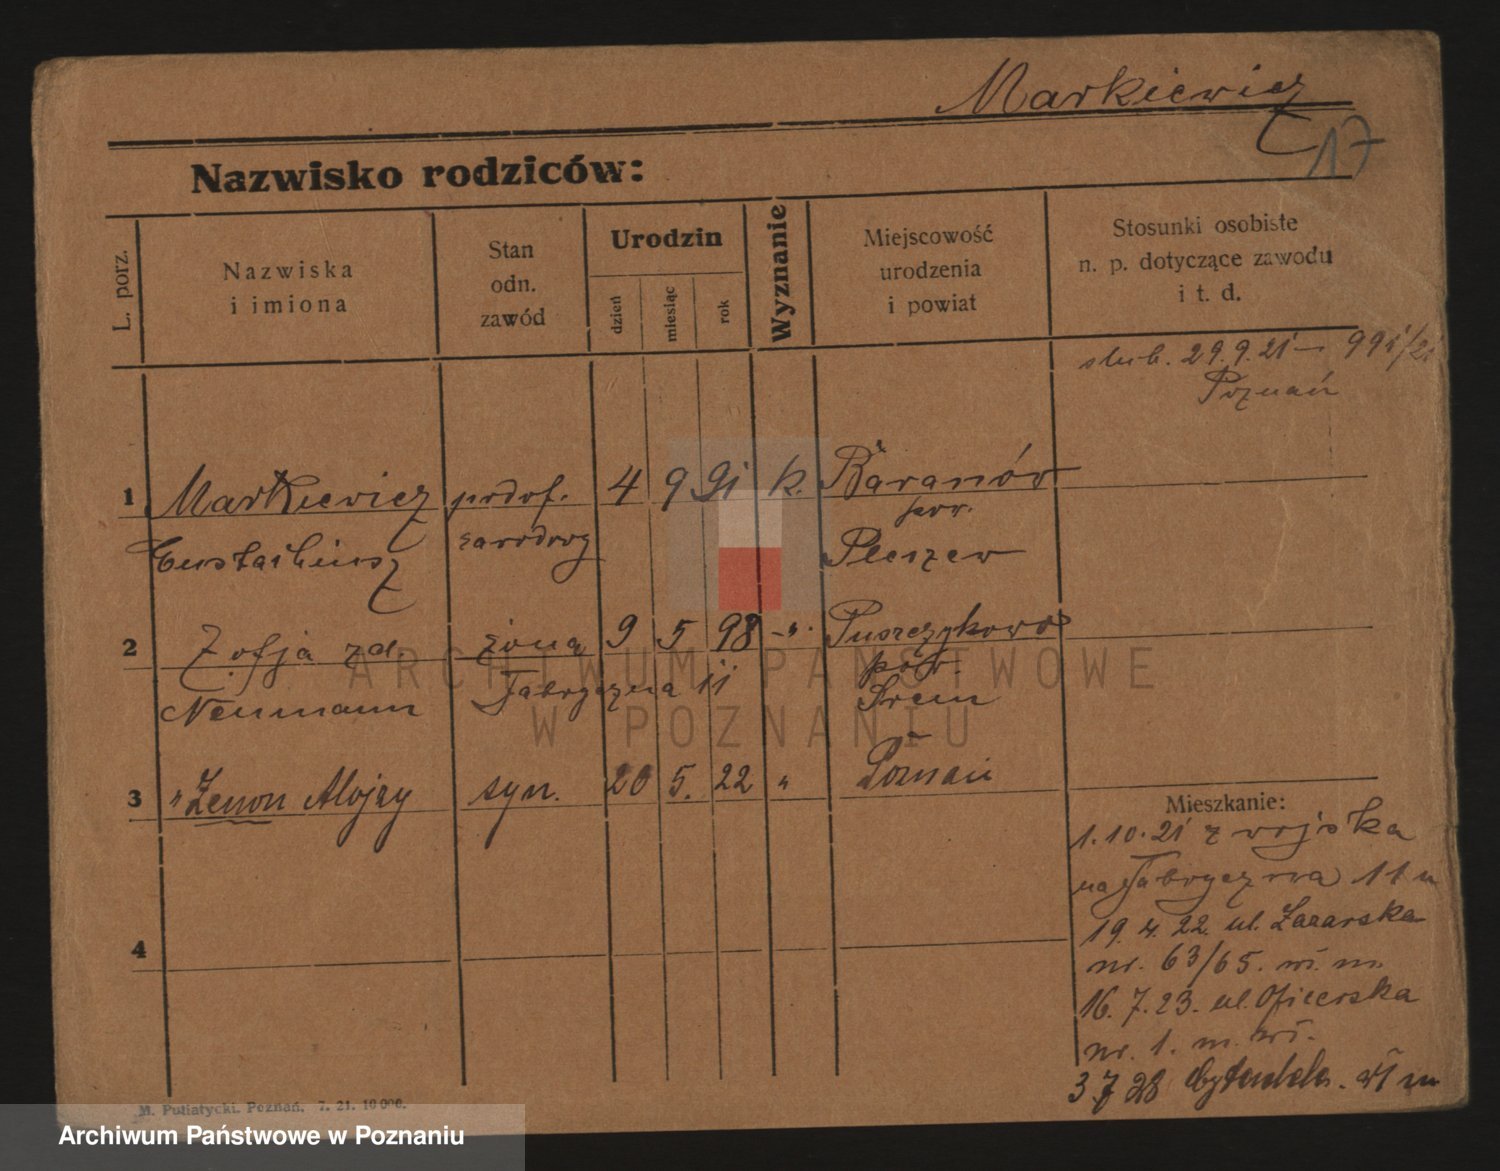 Markiewicz
17
Nazwisko rodziców:
L. porz.
Nazwiska
i imiona
Stan
odn.
zawód
Urodzin
dzień
miesiąc
rok
Wyznanie
Miejscowość
urodzenia
i powiat
Stosunki osobiste
n. p. dotyczące zawodu
i t. d.
ślub. 29.9.21 — 991/21
Poznań
1 Markiewicz podof. 4 9 91 k. Baranów
Eustachiusz zawodowy pow.
Pleszew
2 Zofja zd. żona 9 5 98 -"- Puszczykowo
Neumann Fabryczna 11 pow.
Śrem
3 " Zenon Alojzy syn. 20 5. 22 " Poznań
4
Mieszkanie:
1.10.21 z wojska
na Fabryczna 11 m
19.4.22. ul. Łazarska
nr. 63/65. wł. m.
16.7.23. ul. Oficerska
nr. 1. m. wł.
3 7 28 Cytadela. wł m
M. Putiatycki. Poznań. 7. 21. 10 000.
ARCHIWUM PAŃSTWOWE
W POZNANIU
Archiwum Państwowe w Poznaniu